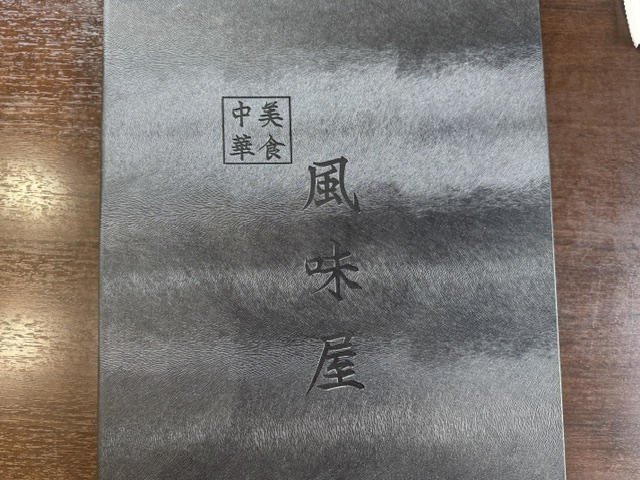 中華
美食
風味屋